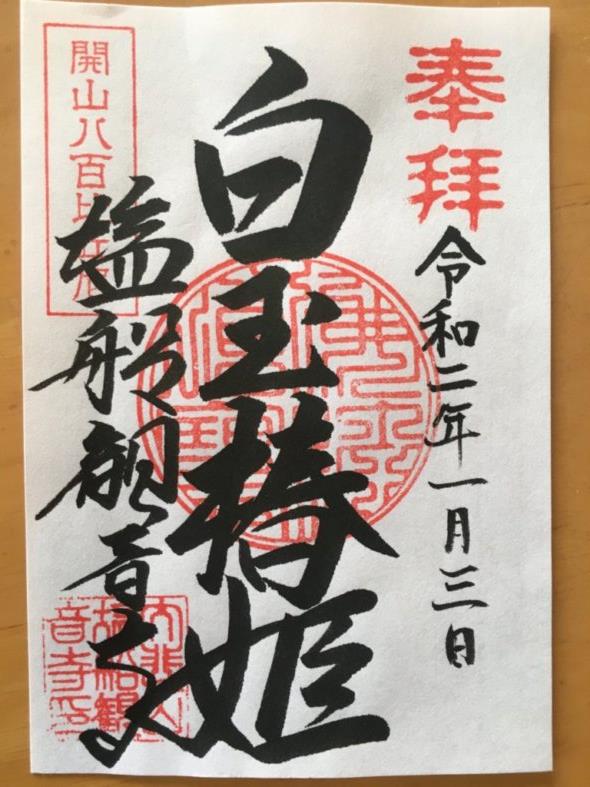 奉拝
令和二年一月三日
白玉椿姫
開山八百比丘尼
塩船観音寺
大悲山
塩船観
音寺印